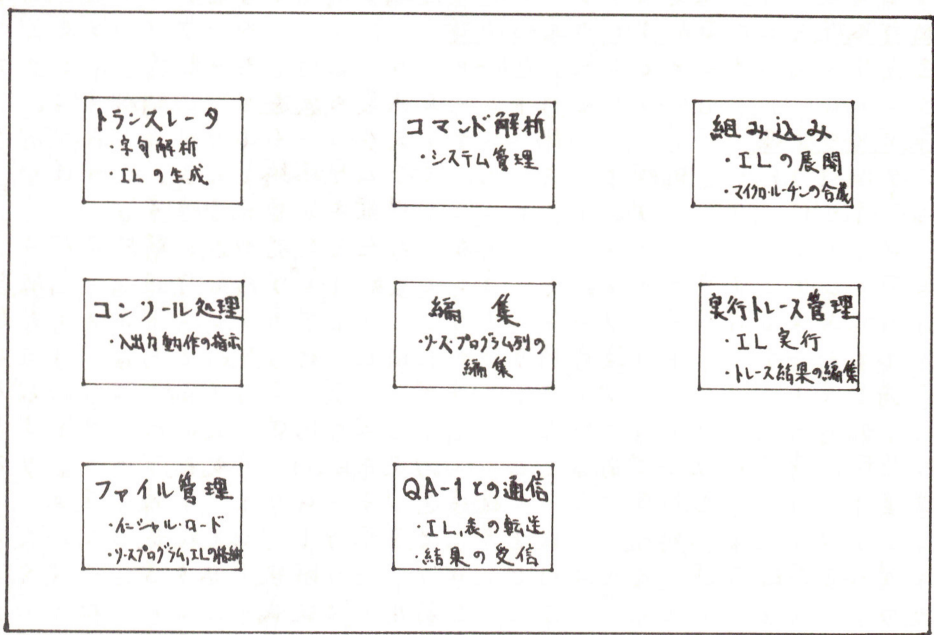 トランスレータ
・字句解析
・ILの生成
コマンド解析
・システム管理
組み込み
・ILの展開
・マイクロ・ルーチンの合成
コンソール処理
・入出力動作の指示
編集
・ソース・プログラム列の
編集
実行トレース管理
・IL実行
・トレース結果の編集
ファイル管理
・イニシャル・ロード
・ソースプログラム,ILの格納
QA-1との通信
・IL,表の転送
・結果の受信